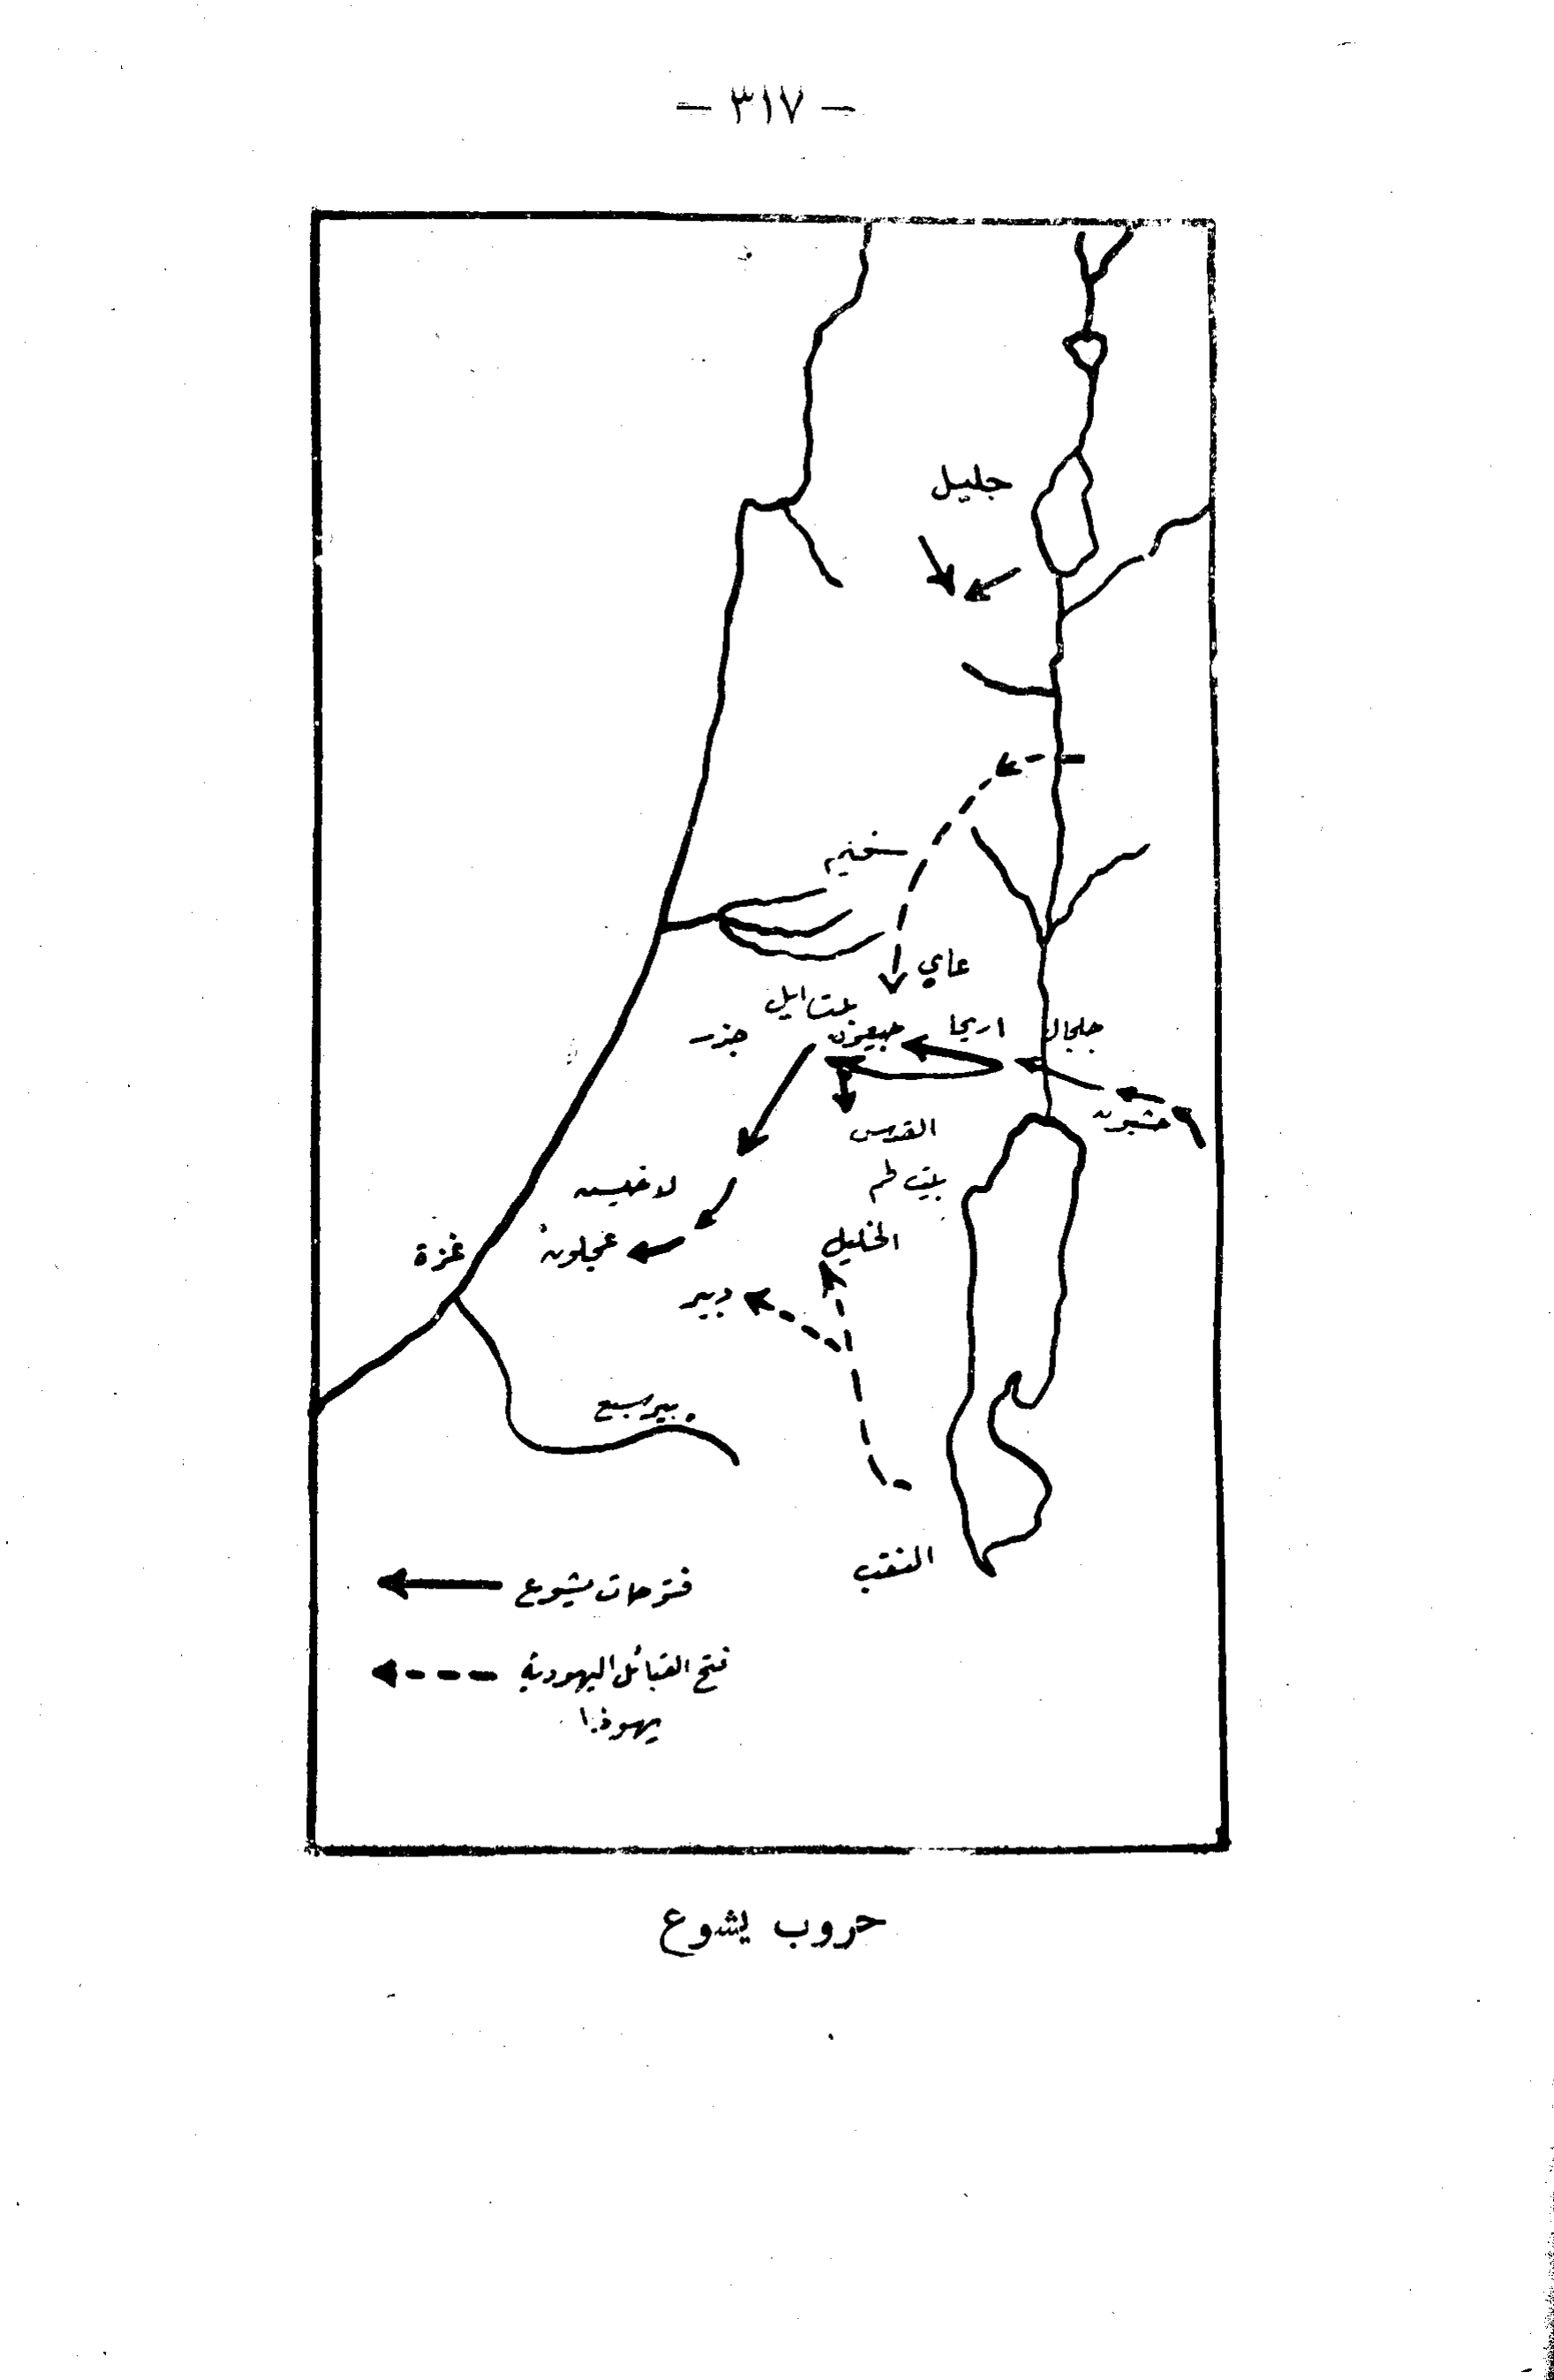 — ٣١٧ —
جليل
سخيم
عاي
بيت ايل
جلجال
اريحا
جبعون
جزر
حشبون
القدس
بيت لحم
لاخيس
الخليل
عجلون
غزة
دبير
بير سبع
النقب
فتوحات يشوع
فتح القبائل اليهودية
يهوذا
حروب يشوع